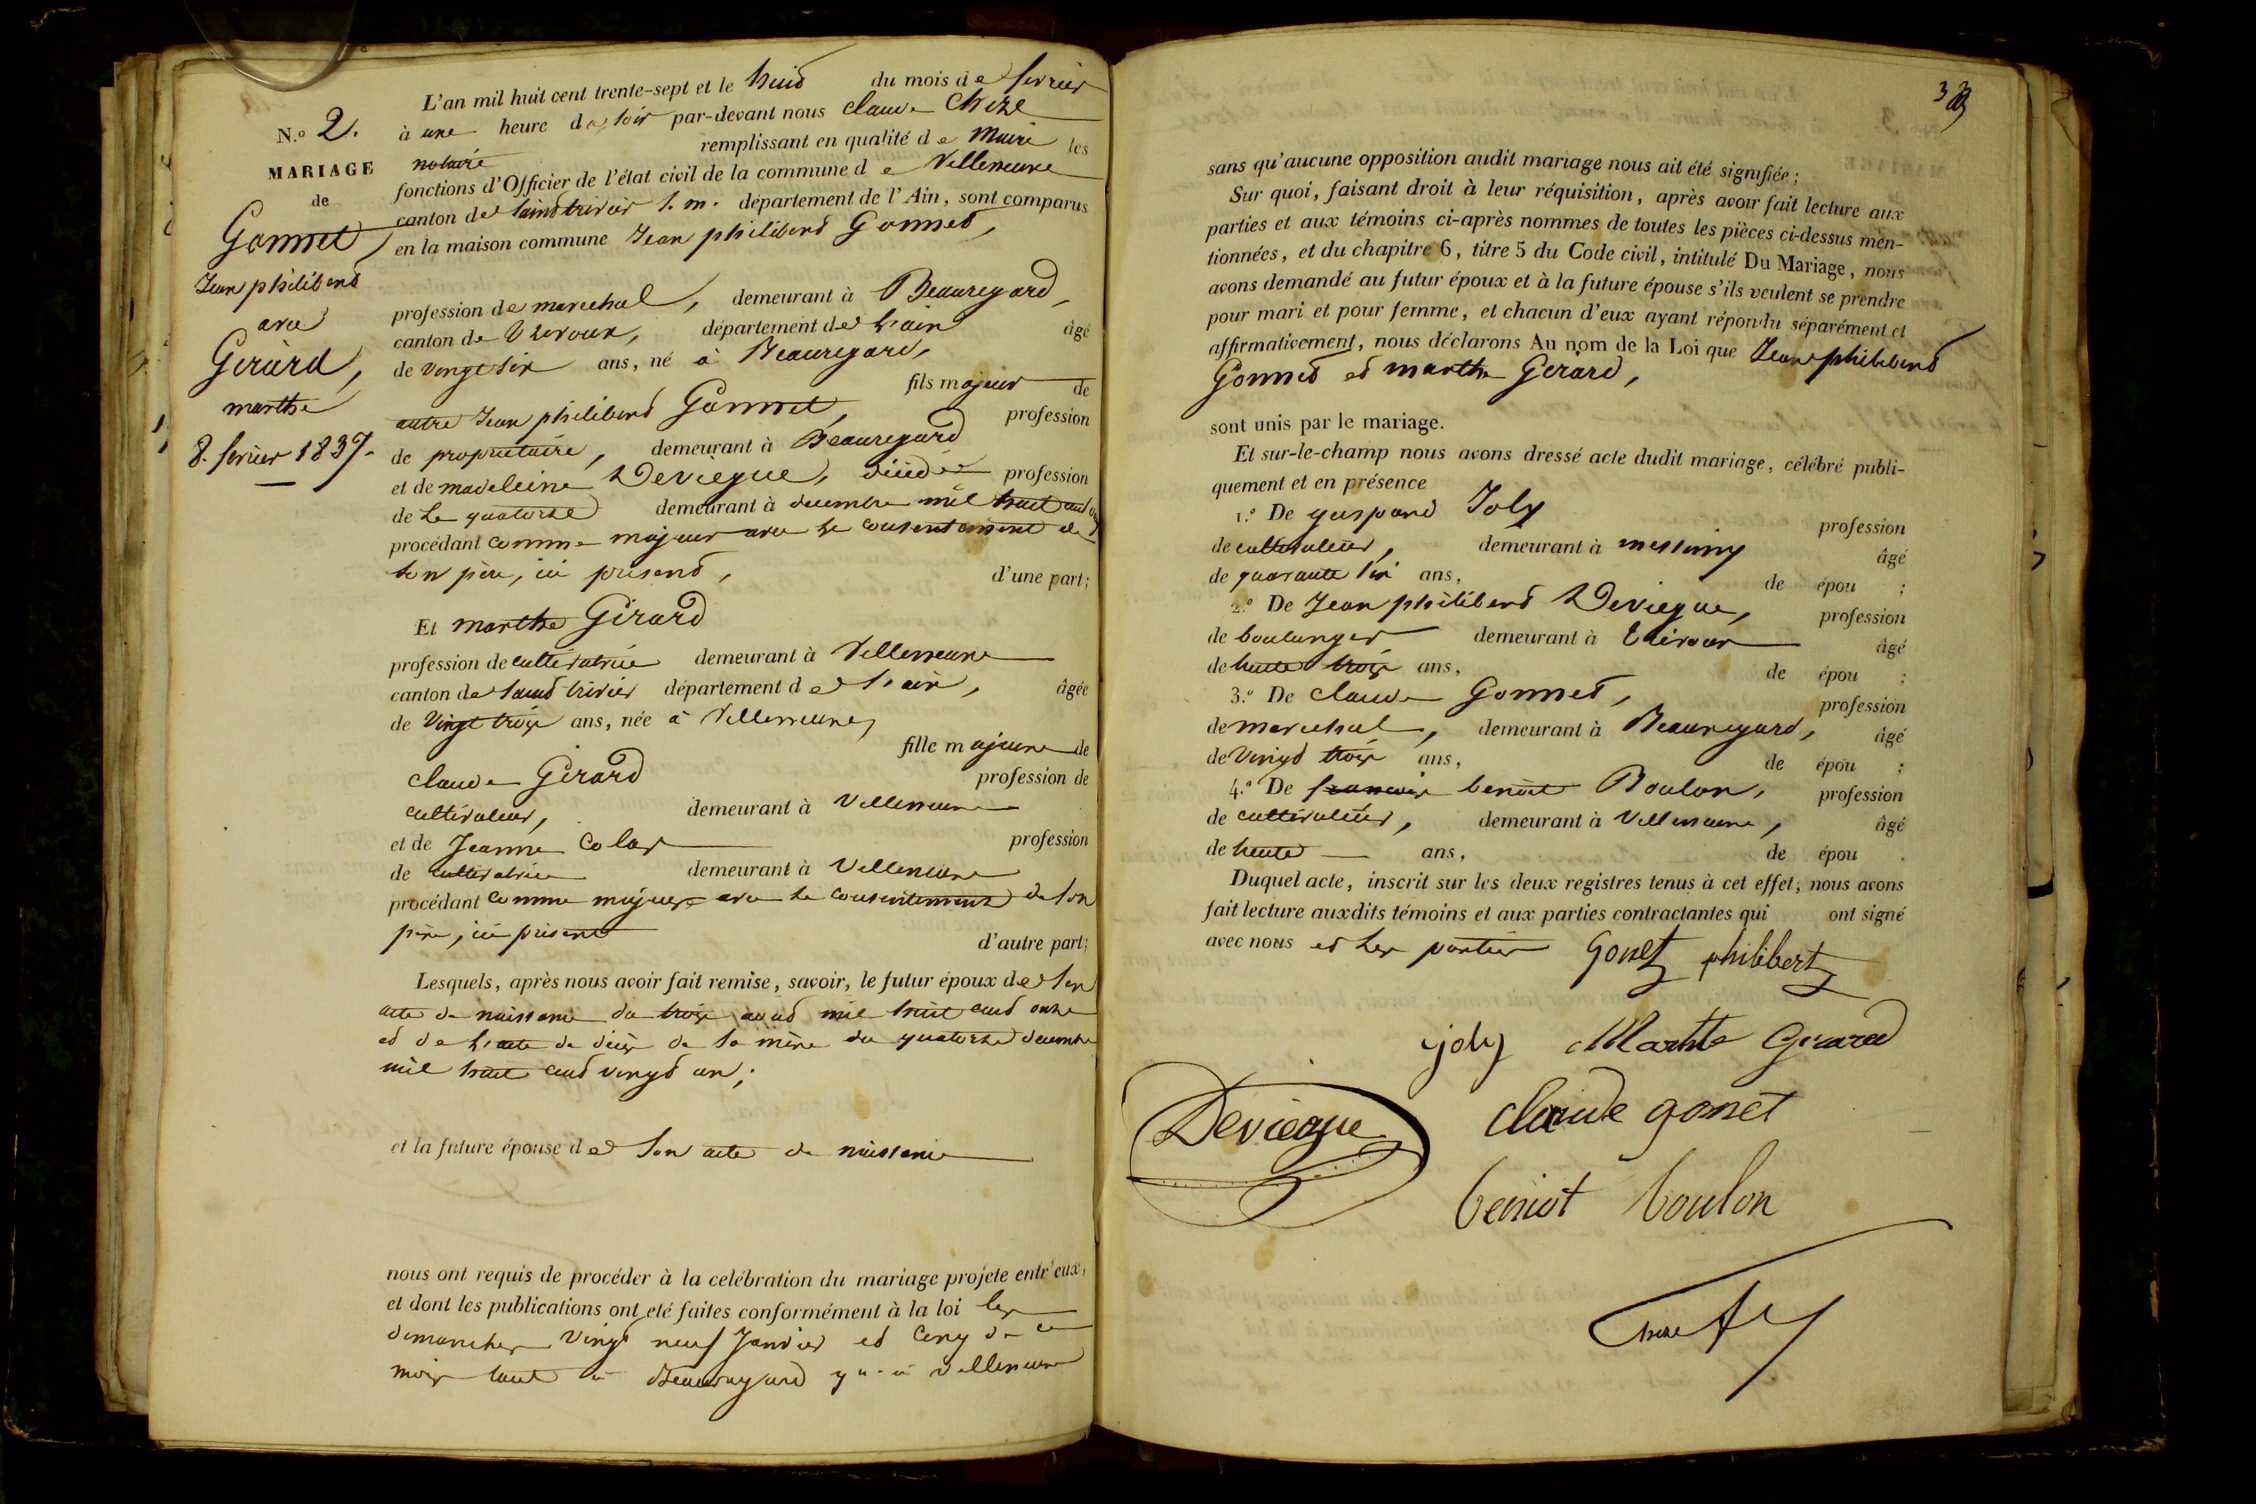 N.º 2.
MARIAGE
de
Gonnet,
Jean philiberd
avec
Gérard,
marthe
8. fevrier 1837.
L'an mil huit cent trente-sept et le huid du mois de fevrier
à une heure du soir par-devant nous claude Chize
notaire remplissant en qualité de Maire les
fonctions d'Officier de l'état civil de la commune de Villeneuve
canton de saind trivier S. m. département de l'Ain, sont comparus
en la maison commune Jean philiberd Gonned,
profession de marechal, demeurant à Beauregard,
canton de trevoux, département de L'ain âgé
de vingt six ans, né à Beauregard,
fils majeur de
autre Jean philiberd Gonnet, profession
de propriétaire, demeurant à Beauregard
et de madeleine Deviegue, décédée profession
de Le quatorze demeurant à decembre mil huit cent
procédant comme majeur avec le consentement de
son père, ici présend, d'une part;
Et marthe Gérard
profession de cultivatrice demeurant à Villeneuve
canton de saind trivier département de L'ain, âgée
de vingt trois ans, née à Villeneuve,
fille majeure de
claude Gérard profession de
cultivateur, demeurant à Villeneuve
et de Jeanne Colas profession
de cultivatrice demeurant à Villeneuve
procédant comme majeure avec le consentement de son
père, ici présent d'autre part;
Lesquels, après nous avoir fait remise, savoir, le futur époux de son
acte de naissance du trois aoud mil huit cend onze
ed de L'acte de décès de sa mère du quatorze decembre
mil huit cend vingd un;
et la future épouse de son acte de naissance
nous ont requis de procéder à la celébration du mariage projeté entr'eux,
et dont les publications ont été faites conformément à la loi les
dimanches vingd neuf Janvier ed cinq de ce
mois tant à Beauregard qu'à villeneuve
33
sans qu'aucune opposition audit mariage nous ait été signifiée;
Sur quoi, faisant droit à leur réquisition, après avoir fait lecture aux
parties et aux témoins ci-après nommes de toutes les pièces ci-dessus men-
tionnées, et du chapitre 6, titre 5 du Code civil, intitulé Du Mariage, nous
avons demandé au futur époux et à la future épouse s'ils veulent se prendre
pour mari et pour femme, et chacun d'eux ayant répondu séparément et
affirmativement, nous déclarons Au nom de la Loi que Jean philiberd
Gonned ed marthe Gérard,
sont unis par le mariage.
Et sur-le-champ nous avons dressé acte dudit mariage, célébré publi-
quement et en présence
1.º De gaspard Joly profession
de cultivateur, demeurant à messimy âgé
de quarante six ans, de épou ;
2.º De Jean philiberd Deviegue, profession
de boulanger demeurant à trévoux âgé
de trente trois ans, de épou ;
3.º De claude Gonned, profession
de marechal, demeurant à Beauregard, âgé
de vingd trois ans, de épou ;
4.º De francois benoit Boulon, profession
de cultivateur, demeurant à Villeneuve, âgé
de trente ans, de épou .
Duquel acte, inscrit sur les deux registres tenus à cet effet, nous avons
fait lecture auxdits témoins et aux parties contractantes qui ont signé
avec nous ed les parties gonet philibert
joly Marthe Gerard
Deviegue claude gonet
benoit boulon
Chize